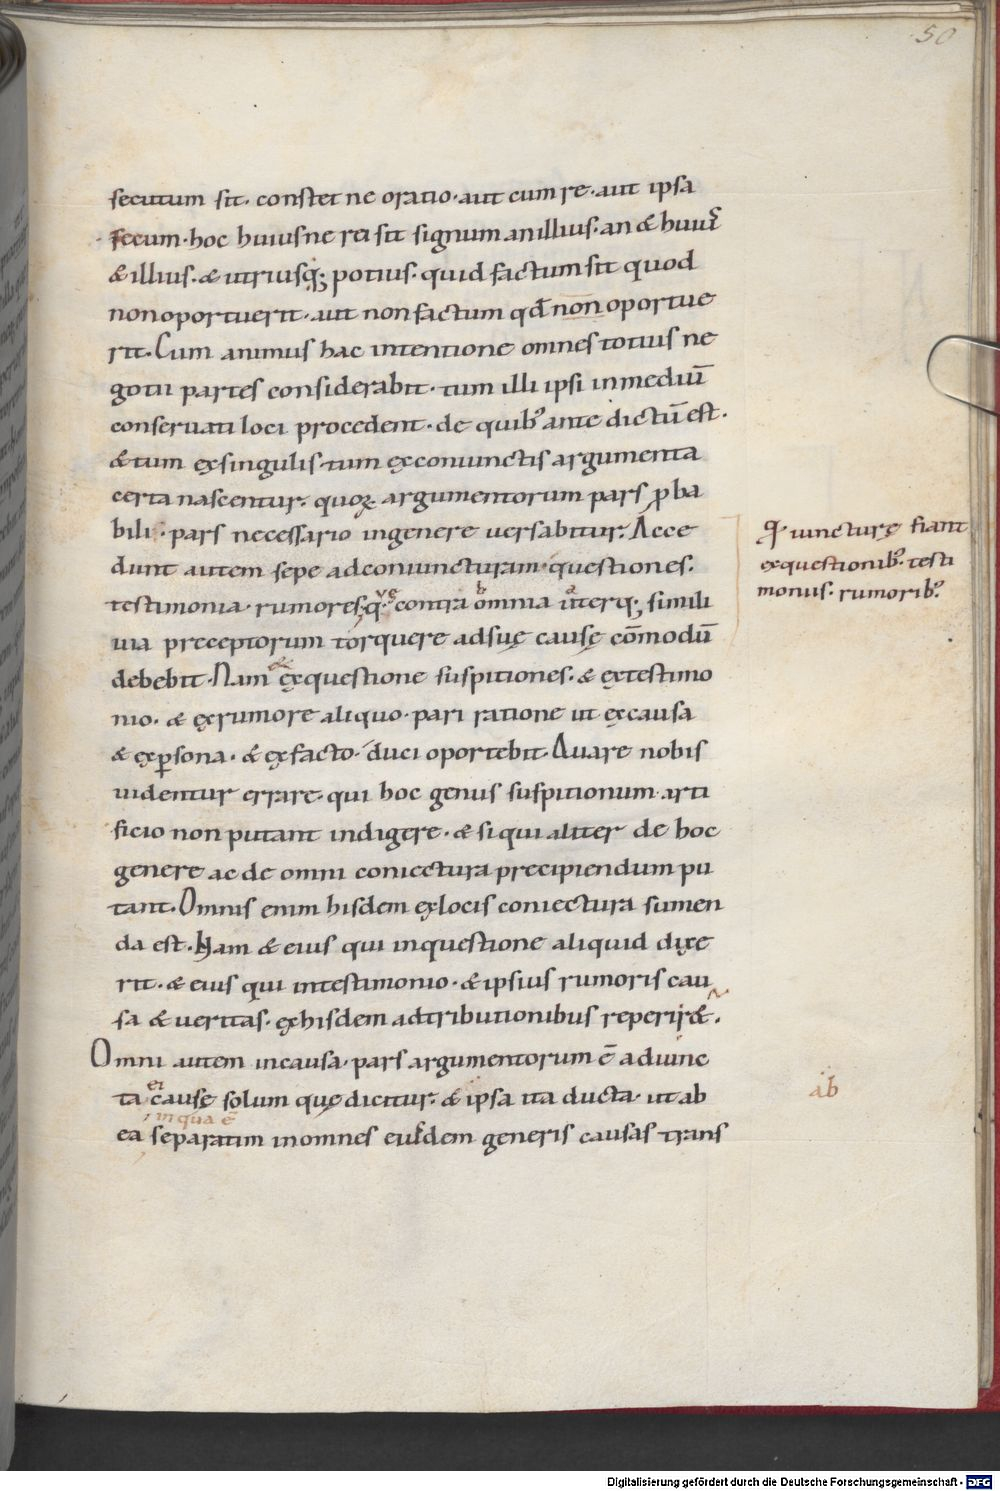 50
secutum sit. constet ne oratio. aut cum re. aut ipsa
secum. hoc huiusne rei sit signum an illius. an & huiuſ
& illius. & utriusq; potius. quid factum sit quod
non oportuerit. aut non factum qđ non oportue
rit. Cum animus hac intentione omnes totius ne
gotii partes considerabit. tum illi ipsi in mediū
conseruati loci procedent. de quib' ante dictū est.
& tum ex singulis. tum ex coniunctis argumenta
certa nascentur. quoꝝ argumentorum pars ꝓba
bili. pars necessario in genere uersabitur. Acce
dunt autem sepe ad coniuncturam. questiones.
testimonia. rumores. q; contra omnia uterq; simili
uia preceptorum torquere ad suę causę cōmodū
debebit. Nam & ex questione suspitiones. & ex testimo
nio. & ex rumore aliquo. pari ratione ut ex causa
& ex ꝑsona. & ex facto. duci oportebit. Quare nobis
uidentur errare. qui hoc genus suspitionum arti
ficio non putant indigere. & si qui aliter de hoc
genere ac de omni coniectura precipiendum pu
tant. Omnis enim hisdem ex locis coniectura sumen
da est. Nam & eius qui in questione aliquid dixe
rit. & eius qui in testimonio. & ipsius rumoris cau
sa & ueritas. ex hisdem adtributionibus reperir&.
Omni autem in causa. pars argumentorum ē adiunc
ei
ta causę solum quę dicitur. & ipsa ita ducta. ut ab
in qua ē
ea separatim in omnes eiuſdem generis causas trans
iuncturę fiant
ex questionib'. testi
moniis. rumorib'.
ab
Digitalisierung gefördert durch die Deutsche Forschungsgemeinschaft - DFG